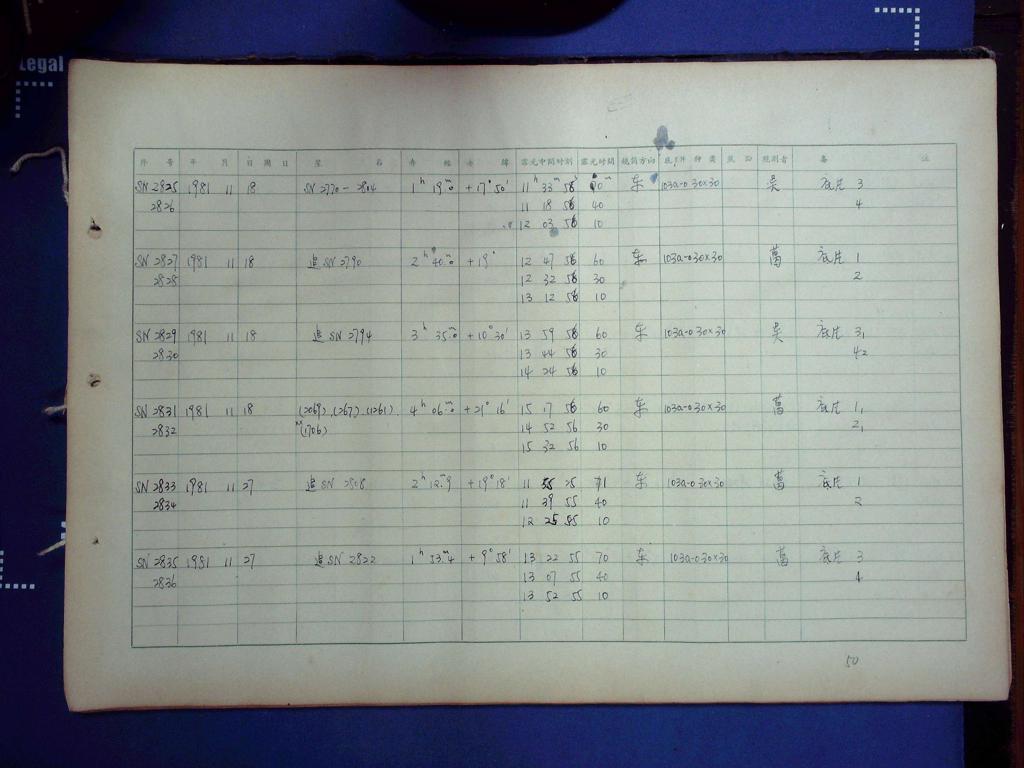 Legal
件 号 年 月 日 周 日 星 名 赤 经 赤 纬 露光中间时刻 露光时间 镜筒方向 底片种类 观测者 备 注
SN 2825 1981 11 18 SN 2770-2804 1h 19m.0 +17°50' 11h 33m 56s 东 103a-o 30×30 吴 底片 3
2826 11 18 56 40 4
12 03 56 10
SN 2827 1981 11 18 追SN 2790 2h 40m.0 +19° 12 47 56 60 东 103a-o 30×30 万 底片 1
2828 12 32 56 30 2
13 12 56 10
SN 2829 1981 11 18 追SN 2794 3h 35m.0 +10°30' 13 59 56 60 东 103a-o 30×30 吴 底片 3,
2830 13 44 56 30 42
14 24 56 10
SN 2831 1981 11 18 (2069),(267),(1261) 4h 06m.0 +21°16' 15 17 56 60 东 103a-o 30×30 万 底片 1,
2832 (1706) 14 52 56 30 2,
15 32 56 10
SN 2833 1981 11 27 追SN 2808 2h 12m.9 +19°18' 11 55 25 71 东 103a-o 30×30 万 底片 1
2834 11 39 55 40 2
12 25 55 10
SN 2835 1981 11 27 追SN 2822 1h 53m.4 +9°58' 13 22 55 70 东 103a-o 30×30 万 底片 3
2836 13 07 55 40 4
13 52 55 10
50